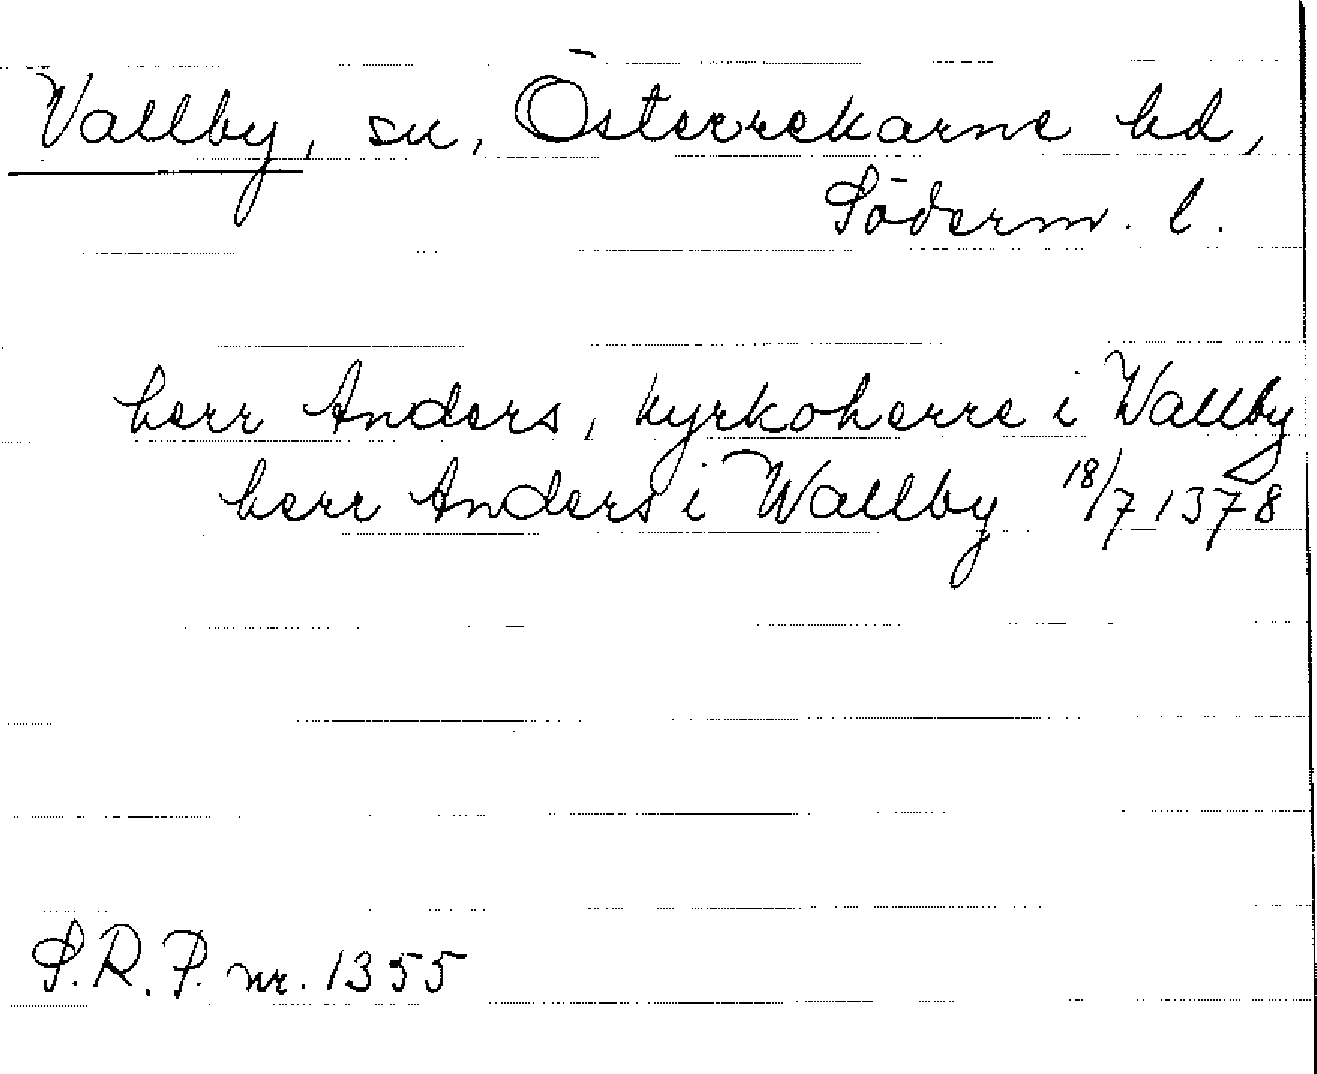 Vallby, sn, Österrekarne hd,
Söderm. l.
herr Anders, kyrkoherre i Wallby
herr Anders i Wallby 18/7 1378
S.R.P. nr. 1355